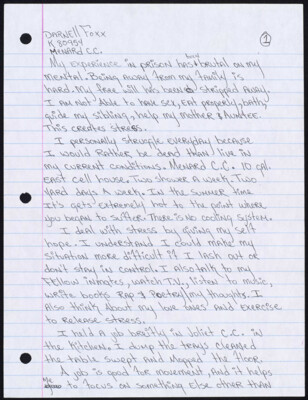 DARNELL FOXX
K80954
MENARD C.C.
1
My experience in prison has brutal on my
mental. Being away from my family is
hard. My free will has been stripped away.
I am not able to have sex, eat properly, bath,
guide my sibling, help my mother & Auntee.
This creates stress.
I personally struggle everyday because
I would rather be dead than live in
my current conditions. Menard C.C. 10 gal.
East cell house. Two shower a week. Two
yard days a week. In the summer time
it's gets extremely hot to the point where
you began to suffer. There is no cooling system.
I deal with stress by giving my self
hope. I understand I could make my
situation more difficult if I lash out or
don't stay in control. I also talk to my
fellow inmates, watch T.V., listen to music,
write books Rap & Poetry my thoughts. I
also think about my love ones and exercise
to release stress.
I held a job briefly in Joliet C.C. in
the kitchen. I dump the trays cleaned
the table swept and mopped the floor.
A job is good for movement, and it helps
me to focus on something else other than